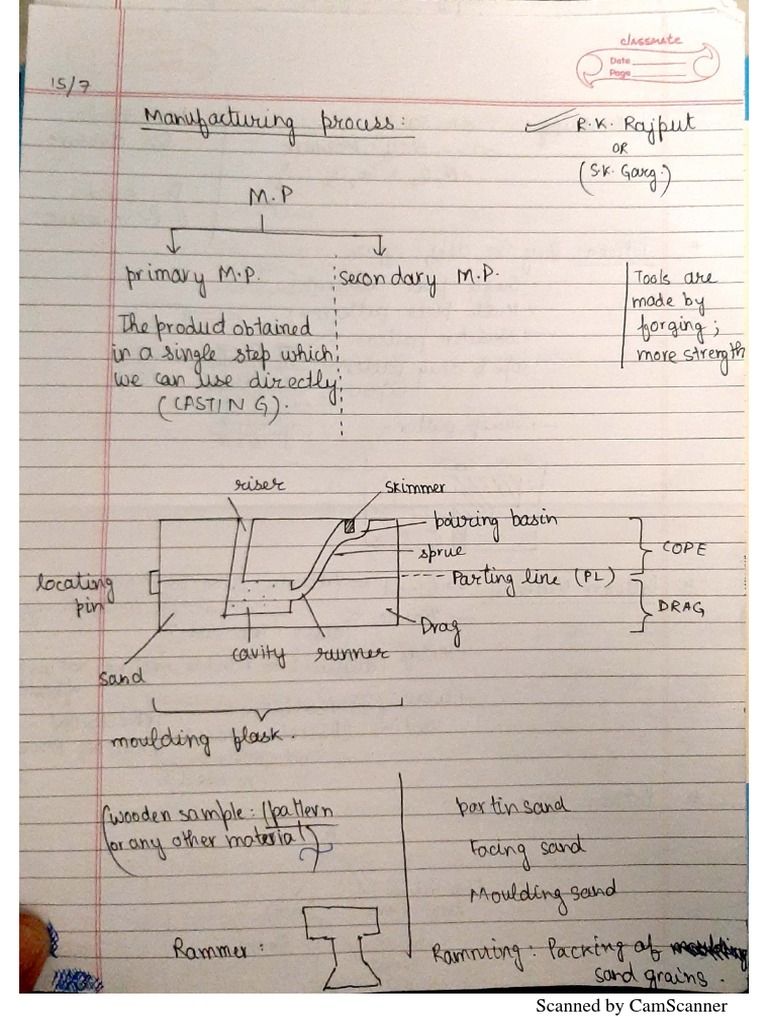 classmate
Date
Page
15/7
Manufacturing process:
R.K. Rajput
OR
(S.K. Garg.)
M.P
primary M.P.
secondary M.P.
The product obtained
in a single step which
we can use directly
(CASTING).
Tools are
made by
forging;
more strength
riser
skimmer
pouring basin
sprue
Parting line (PL)
COPE
locating
pin
DRAG
Drag
cavity
runner
sand
moulding flask.
(wooden sample: (pattern
or any other material)
partin sand
Facing sand
Moulding sand
Rammer:
Ramming: Packing of
sand grains.
Scanned by CamScanner